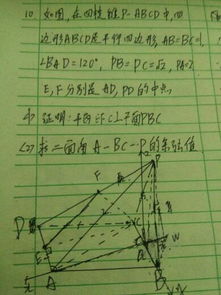 10. 如图,在四棱锥P-ABCD中,四
边形ABCD是平行四边形, AB=BC=1,
∠BAD=120°, PB=PC=√2, PA=2
E,F分别是AD,PD的中点
(1) 证明:平面EFC⊥平面PBC
(2) 求二面角A-BC-P的余弦值
P
F
D
C
E
A
B